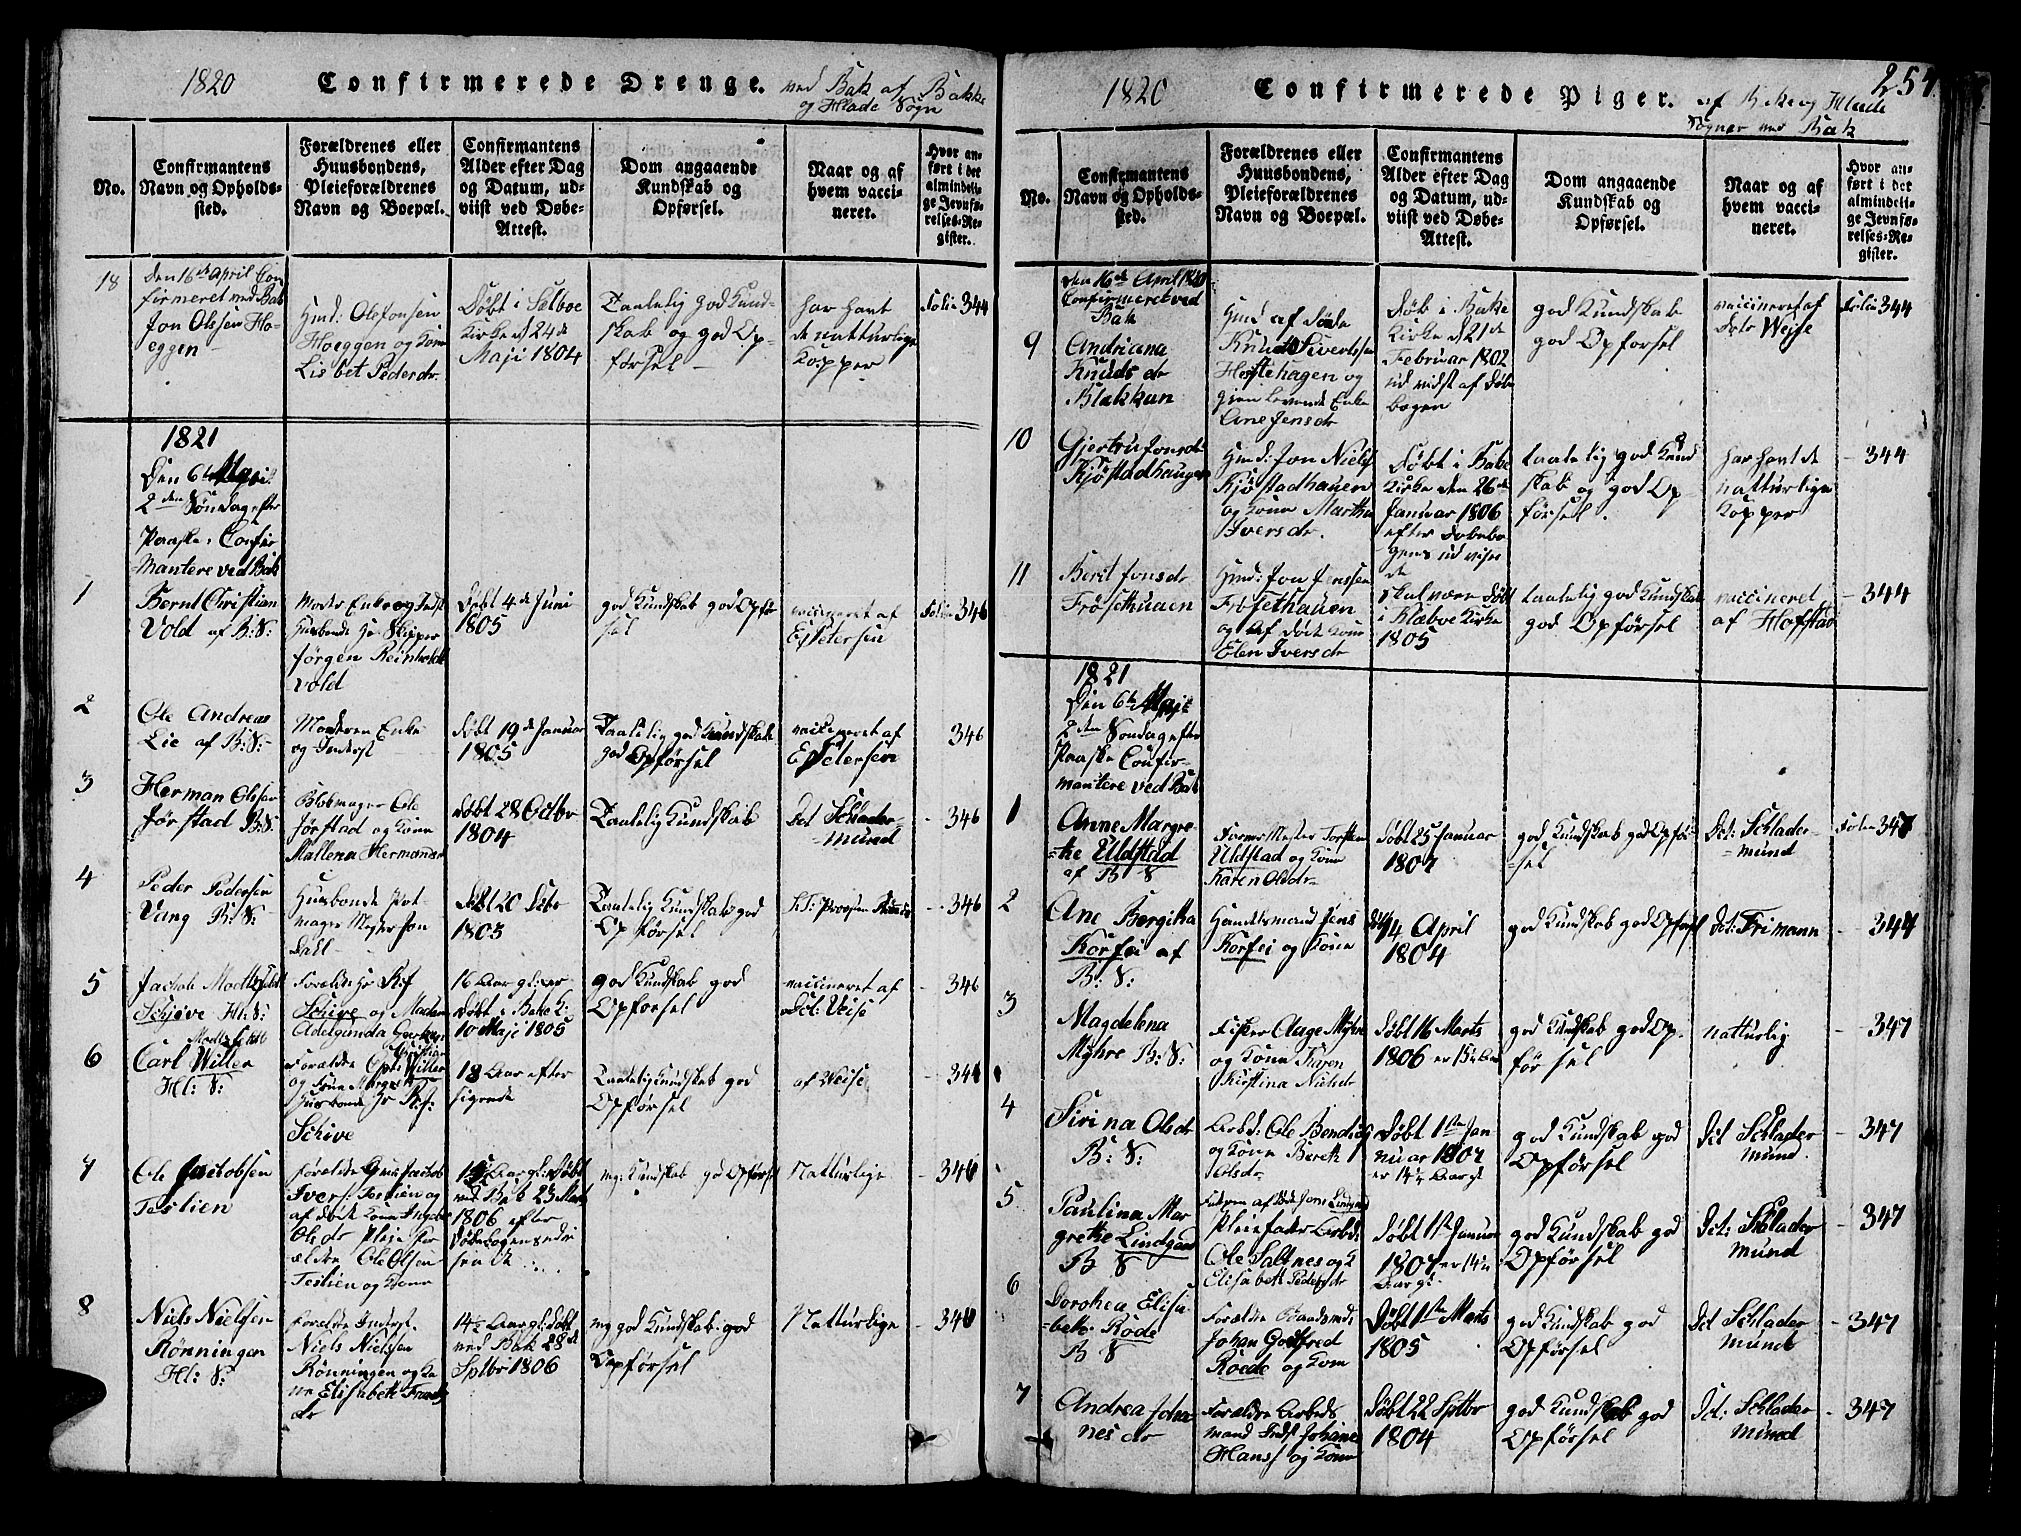 1820 Confirmerede Drenge. ved Bak af Bakke
og Hlade Sogn
No.
Confirmantens
Navn og Opholds-
sted.
Forældrenes eller
Huusbondens,
Pleieforældrenes
Navn og Boepæl.
Confirmantens
Alder efter Dag
og Datum, ud-
viist ved Døbe-
Attest.
Dom angaaende
Kundskab og
Opførsel.
Naar og af
hvem vacci-
neret.
Hvor an-
ført i det
almindeli-
ge Jevnfø-
relses-Re-
gister.
18
Den 16de April Con
firmeret ved Bak
Jon Olsen Ho-
eggen
Hmd: Ole Jonsen
Hoeggen og Kone
Lisbet Pedersdr.
Døbt i Selboe
Kirke d 24de
Maji 1804
Taalelig god Kund-
skab og god Op-
førsel -
har havt
de natturlige
Kopper
Folio 344
1821
Den 6te Maji
2den Søndag efter
Paaske. Confir
mantere ved Bak
1
Bernt Christian
Vold af B: S:
Moder Enke og Indst
Husbonde Hr Skipper
Jørgen Reinholdt
Vold
Døbt 4de Juni
1805
god Kundskab god Opfør
sel
vaccineret af
E Petersen
Folio 346
2
Ole Andreas
Lie af B: S: -
Moderen Enke
og Inderst
døbt 19de Januar
1805
Taalelig god Kundskab
god Opførsel
vaccineret af
E Petersen
346
3
Herman Olsen
Jørstad B: S:
Blokmager Ole
Jørstad og Kone
Mallena Hermansdr
døbt 28 Octbr
1804
Taalelig Kundskab
Det Schlader-
-mund
- 346
4
Peder Pedersen
Vang B: S: -
Husbonde Pot
mager Mester Jon
Dahl -
Døbt 20 Debr
1803
Taalelig Kundskab god
Opførsel
- 346
5
Jacob
Schjøve Hl: S:
Forældre Hr
Schive og Madam
Adelgunda
16 Aar gl: er
Døbt i Bake K:
10 Maji 1805
god Kundskab god
Opførsel
vaccineret af
Dct: Veise
- 346
6
Carl Willer
Hl: S:
Forældre Willer
og Kone
Husbonde Hr
Schive
18 Aar efter
sigende
Taalelig Kundskab god
Opførsel
af Veise
- 346
7
Ole Jacobsen
Teslien
Forældre Jacob
Ivers: Teslien og
af døde Kone
Olsdr Pleie For
ældre Ole Olsen
Teslien og Kone
15 Aar gl: Døbt
ved Bak 23 Marts
1806 efter
Døbebogens udvi
sende
mg: Kundskab god Opførsel
Natturlige
- 346
8
Niels Nielsen
Rønningen
Hl: S:
Foreldre Inderst
Niels Nielsen
Rønningen og Ko
ne Elisabeth Frants
dr
14½ Aar gl: døbt
ved Bak 28de
Sptbr 1806
mg god Kundskab. god
Opførsel
Natturlige
- 346
1820 Confirmerede Piger. af Bake og Hlade 254.
Sogner ved Bak
No.
Confirmantens
Navn og Opholds-
sted.
Forældrenes eller
Huusbondens,
Pleieforældrenes
Navn og Boepæl.
Confirmantens
Alder efter Dag
og Datum, ud-
viist ved Døbe-
Attest.
Dom angaaende
Kundskab og
Opførsel.
Naar og af
hvem vacci-
neret.
Hvor an-
ført i det
almindeli-
ge Jevnfø-
relses-Re-
gister.
Den 16de April 1820
Confirmeret ved
Bak
9
Andriana
Knudsdr
Blakkun
Hmd af Døde
Knud Sivertsen
Hestehagen og
gien levende Enke
Ane Jensdr
Døbt i Bake
Kirke d 21de
Februar 1802
ud vidst af Døbe
bogen
god Kundskab
god Opførsel
vaccineret af
Dctr Weise
Folio 344
10
Gjertru Jonsdr
Kjøstadhaugen
Hmd: Jon Niels
Kjøstadhauen
og Kone Martha
Iversdr.
Døbt i Bake
Kirke den 26de
Januar 1806
efter Døbebo
gens ud vise
de
taalelig god Kund
skab og god Op
førsel.
har havt de
natturlige
Kopper
- 344
11
Berit Jonsdr
Frøsethuaen
Hmd: Jon Jenssen
Frøsethauen
og af døde Kone
Elen Iversdr
skal være døbt
i Klæboe Kirke
1805
taalelig god Kundskab
god Opførsel
vaccineret
af Hofstad
- 344
1821
Den 6te Maji
2den Søndag efter
Paaske Confir-
mantere ved Bak
1
Anne Margre-
-the Uldstad
af B S
Farver Mester
Uldstad og Kone
Karen Olsdr
døbt 25 Januar
1807
god Kundskab god Opfør
-sel
Dct: Schlader-
-mund
Folio 347
2
Ane Bergitha
Korfei af
B: S:
Handelsmand Jens
Korfei og Kone
døbt 4 April
1804
god Kundskab god Opførsel
Dct: Frimann
- 347
3
Magdelena
Myhre B: S:
Fisker Auge Myhre
og Kone Karen
Kirstina Nielsdr
døbt 16 Marts
1806 er 15¼ Aar
god Kundskab god Op-
førsel
natturlig
347
4
Sirina Olsdr
B: S:
Arbd: Ole Bendixs
og Kone Bereth
Olsdr
Døbt 1ste Jan
nuar 1807
er 14¼ Aar gl
god Kundskab god
Opførsel
Dct Schlader
mund
- 347
5
Paulina Mar
grethe Lindgaard
B S
Faderen af døde
Pleiefader Arbd:
Ole Saltnes og K
Elisabeth Pedersdr
Døbt 1ste Januar
1807 er 14¼
Aar gl
god Kundskab god
Opførsel
Dct: Schlader
mund
- 347
6
Dorothea Elisa
beth Rode
B S
Forældre
Johan Gotfred
Roede og Kone
Døbt 1ste Marts
1805
god Kundskab god
Opførsel
Dct Schlader
mund
- 347
7
Andrea Johan
nesdr
Forældre Arbeds
mand Indst Johanes
Hanss og Kone
døbt 22 Sptbr
1804
god Kundskab god
Opførsel
Dct: Schlader
mund
- 347